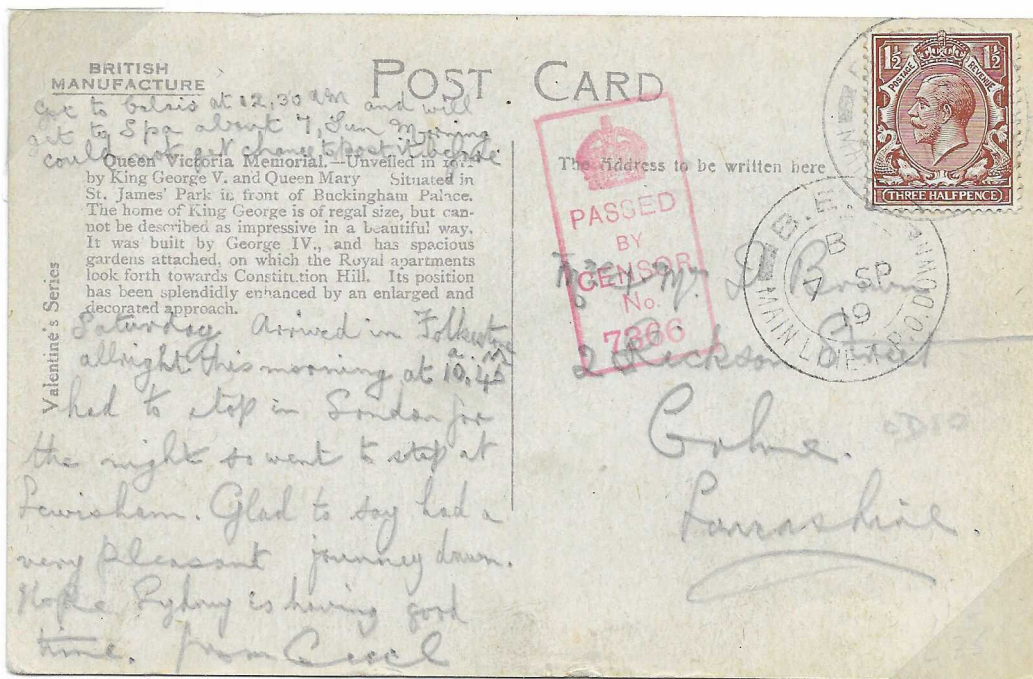 BRITISH
MANUFACTURE
POST CARD
got to Calais at 12.30 am and will
get to Spa about 7, Sun Morning
could not get chance to post it before
Queen Victoria Memorial.—Unveiled in
by King George V. and Queen Mary Situated in
St. James' Park in front of Buckingham Palace.
The home of King George is of regal size, but can-
not be described as impressive in a beautiful way.
It was built by George IV., and has spacious
gardens attached, on which the Royal apartments
look forth towards Constitution Hill. Its position
has been splendidly enhanced by an enlarged and
decorated approach.
Valentine's Series
Saturday. Arrived in Folkestone
allright this morning at 10.45 a.m
had to stop in London for
the night so went to stop at
Lewisham. Glad to say had a
very pleasant journey down.
Hope Sydney is having good
time. from Cecil
The Address to be written here
PASSED
BY
CENSOR
No.
7366
1½ 1½
POSTAGE REVENUE
THREE HALFPENCE
B
7 SP
19
MAIN LINE
P.O.
Brown
2
Street
Colne.
Lancashire.